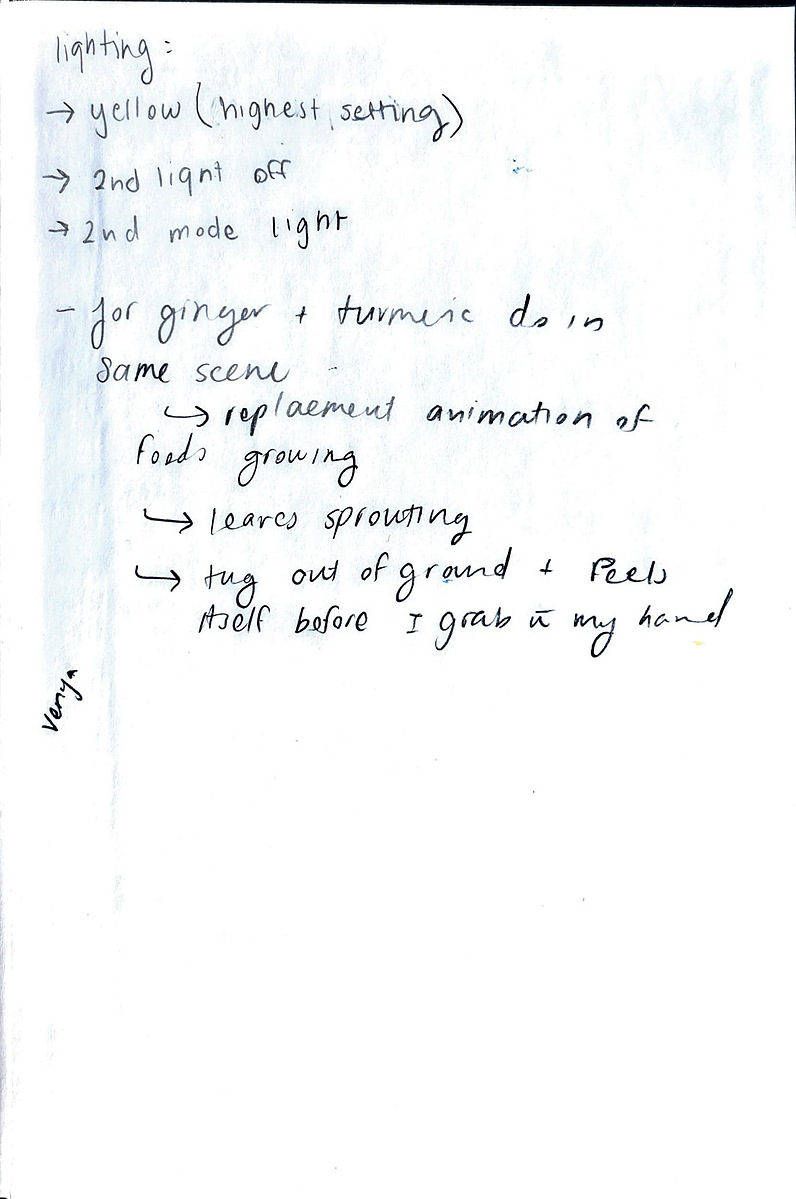 lighting:
→ yellow (highest setting)
→ 2nd light off
→ 2nd mode light
- for ginger + turmeric do in
same scene
↳ replaement animation of
foods growing
↳ leaves sprouting
↳ tug out of ground + Peels
itself before I grab my hand
Venya